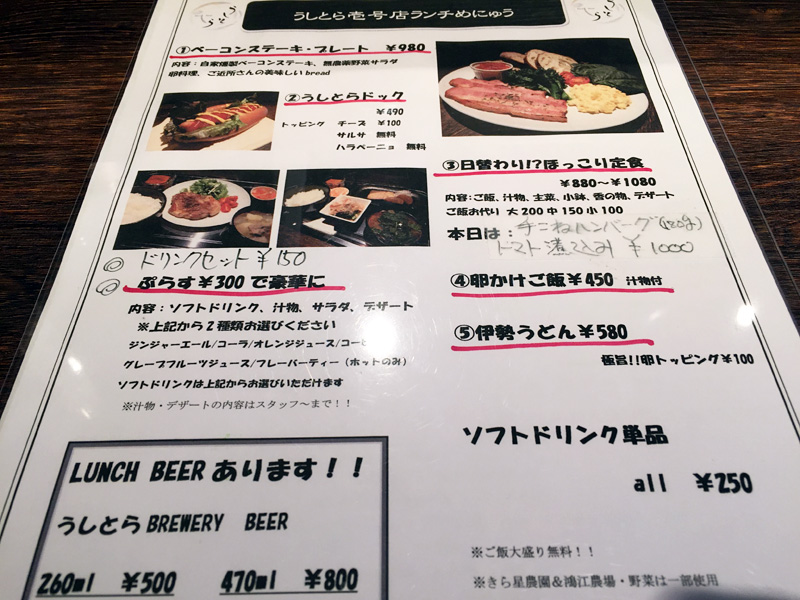 うしとら壱号店ランチめにゅう
①ベーコンステーキ・プレート ¥980
内容：自家燻製ベーコンステーキ、無農薬野菜サラダ
卵料理、ご近所さんの美味しいbread
②うしとらドック
¥490
トッピング チーズ ¥100
サルサ 無料
ハラペーニョ 無料
③日替わり!?ほっこり定食
¥880〜¥1080
内容：ご飯、汁物、主菜、小鉢、香の物、デザート
ご飯お代り 大200 中150 小100
本日は：手ごねハンバーグ(120g)
トマト煮込み ¥1000
◎ ドリンクセット ¥150
◎ ぷらす¥300で豪華に
内容：ソフトドリンク、汁物、サラダ、デザート
※上記から2種類お選びください
ジンジャーエール/コーラ/オレンジジュース/コーヒ
グレープフルーツジュース/フレーバーティー（ホットのみ）
ソフトドリンクは上記からお選びいただけます
※汁物・デザートの内容はスタッフ〜まで！！
④卵かけご飯¥450 汁物付
⑤伊勢うどん¥580
極旨!!卵トッピング¥100
ソフトドリンク単品
all ¥250
LUNCH BEERあります！！
うしとらBREWERY BEER
260ml ¥500 470ml ¥800
※ご飯大盛り無料！！
※きら星農園&鴻江農場・野菜は一部使用